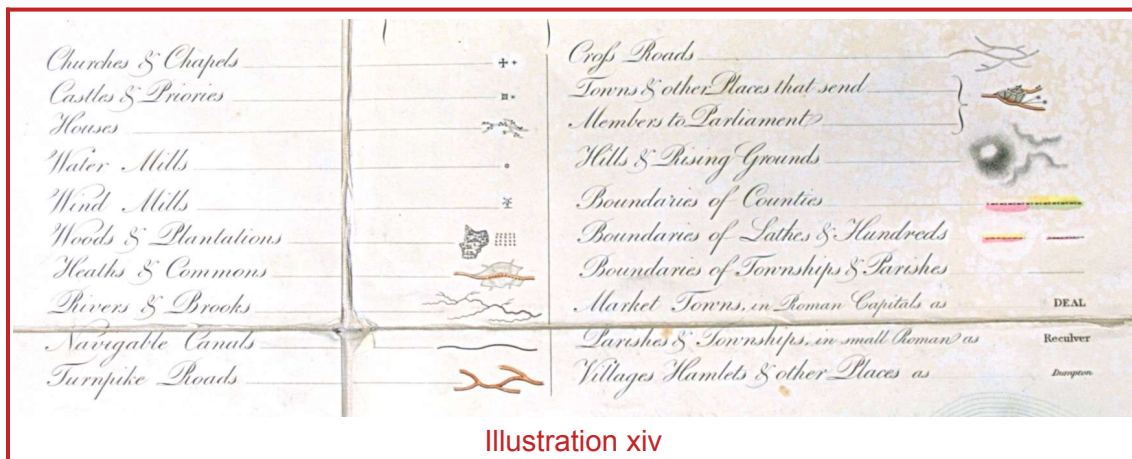 Churches & Chapels
Castles & Priories
Houses
Water Mills
Wind Mills
Woods & Plantations
Heaths & Commons
Rivers & Brooks
Navigable Canals
Turnpike Roads
Croſs Roads
Towns & other Places that send
Members to Parliament
Hills & Rising Grounds
Boundaries of Counties
Boundaries of Lathes & Hundreds
Boundaries of Townships & Parishes
Market Towns, in Roman Capitals as DEAL
Parishes & Townships, in small Roman as Reculver
Villages Hamlets & other Places as Dumpton
Illustration xiv